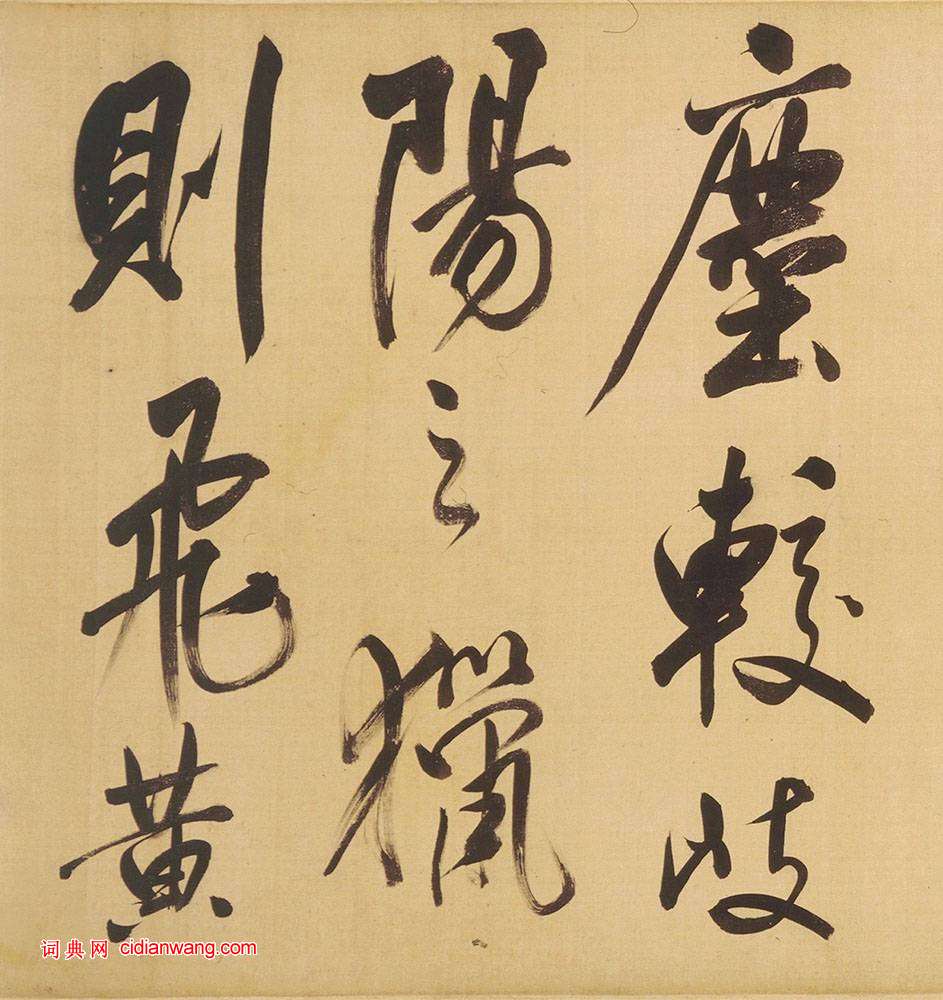 塵較歧
陽之獵
則飛黃
词典网 cidianwang.com